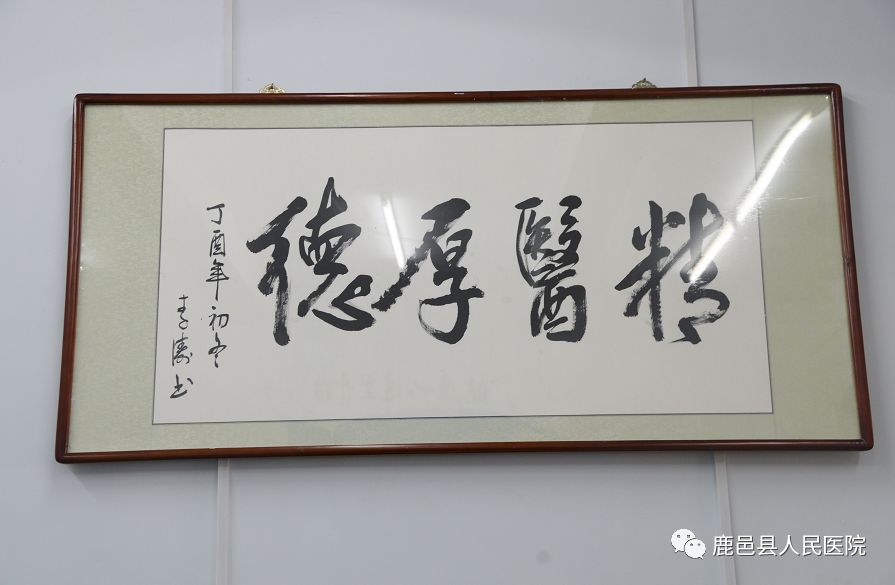 精醫厚德
丁酉年初冬
李濤书
鹿邑县人民医院